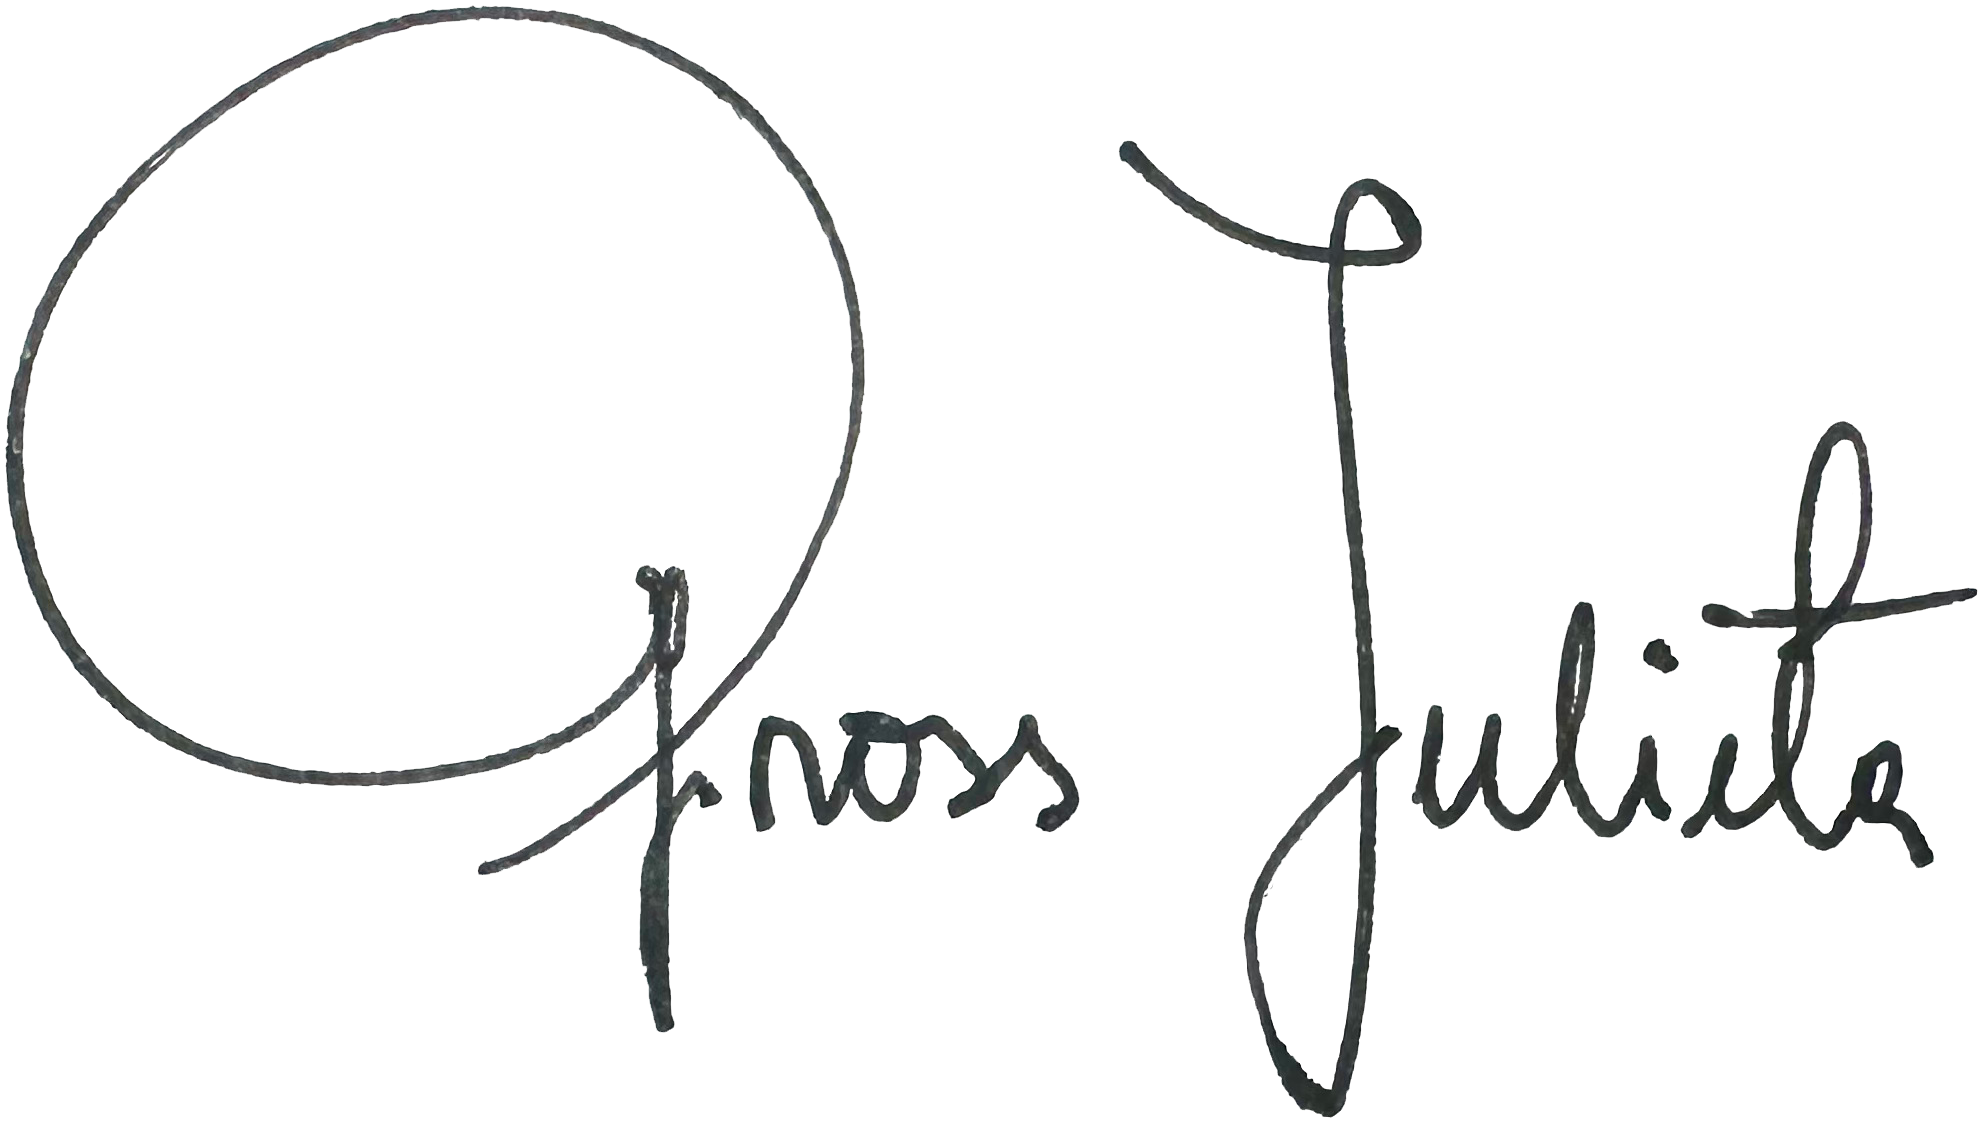 Gross Julieta